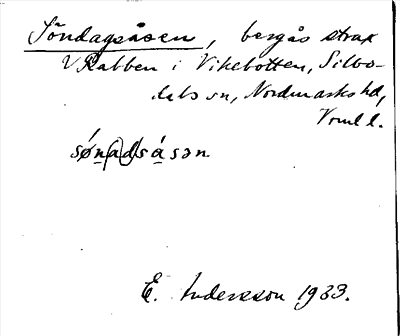 Söndagsåsen, bergås strax
V Rabben i Vikebotten, Silbo-
dals sn, Nordmarks hd,
Vrml l.
sǿn(a)dsá̱sən
E. Andersson 1933.